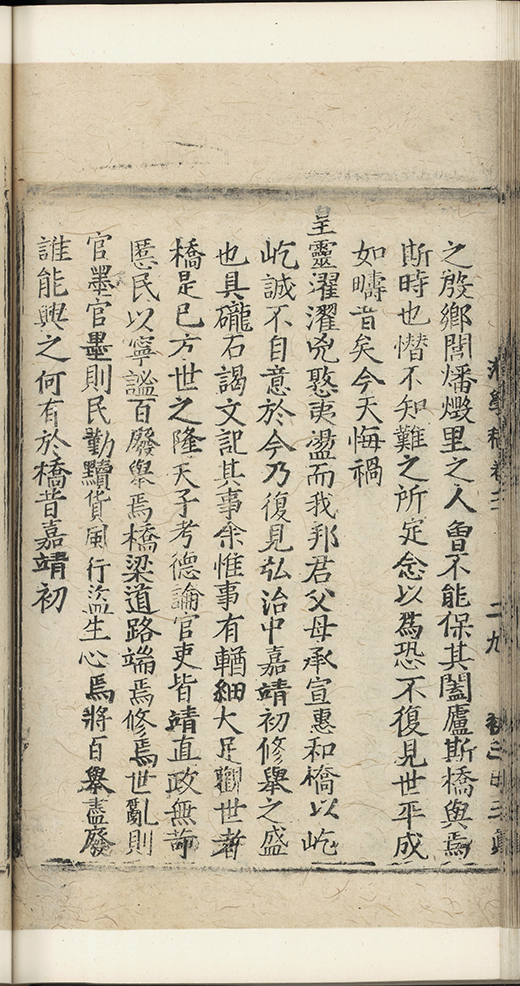 稿卷十二 二九
之殷鄉閭燔燬里之人曾不能保其闔廬斯橋與焉
斯時也憯不知難之所定念以爲恐不復見世平成
如疇昔矣今天悔禍
皇靈濯濯兇憝夷盪而我邦君父母承宣惠和橋以屹
屹誠不自意於今乃復見弘治中嘉靖初修舉之盛
也具礲石謁文記其事余惟事有輶細大足觀世者
橋是已方世之隆天子考德論官吏皆靖直政無苛
慝民以寧謐百廢舉焉橋梁道路端焉修焉世亂則
官墨官墨則民勤黷貨風行盜生心焉將百舉盡廢
誰能興之何有於橋昔嘉靖初